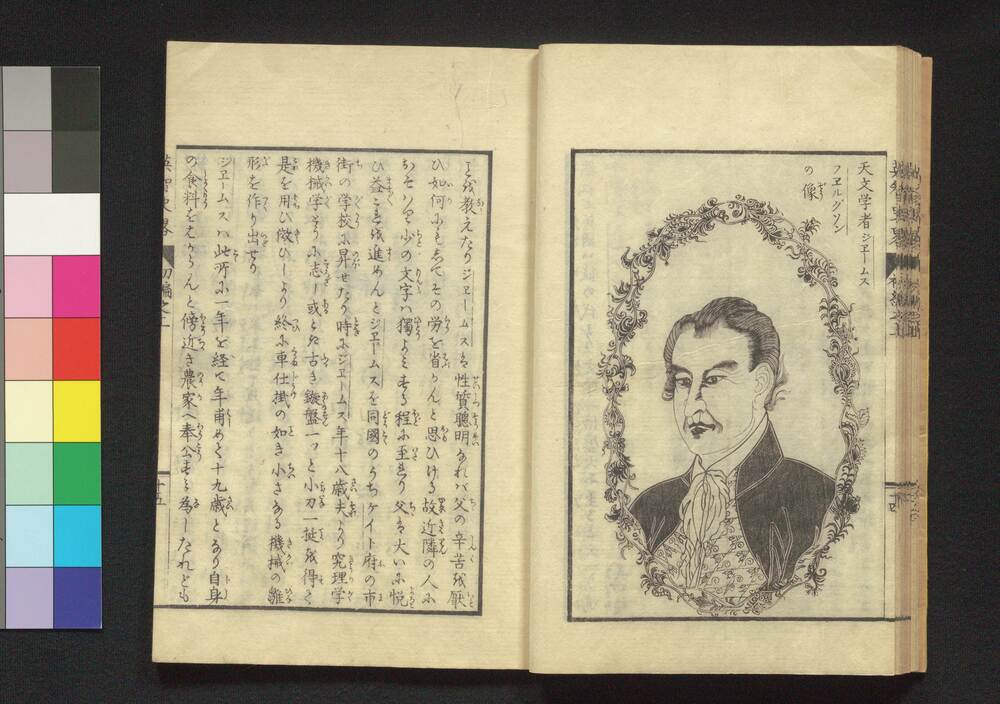 天文学者ジェームス
フェルグソン
の像
を教えたりジェームスは性質聰明なれバ父の辛苦を厭
ひ如何にもしてその労を省かんと思ひける故近隣の人に
少の文字ハ獨よミする程に至れり父は大いに悦
ひ益これを進めんとジェームスを同國のうちケイト府の市
街の学校に昇せたり時にジェームス年十八歳夫より究理学
機械学等に志し或とき古き鏇盤一つと小刀一挺を得て
是を用ひ傚ひしより終に車仕掛の如き小さなる機械の雛
形を作り出せり
ジェームスハ此所に一年を経て年甫めて十九歳となり自身
の食料をもとんと傍近き農家へ奉公をも為したれども
初編之上
十五